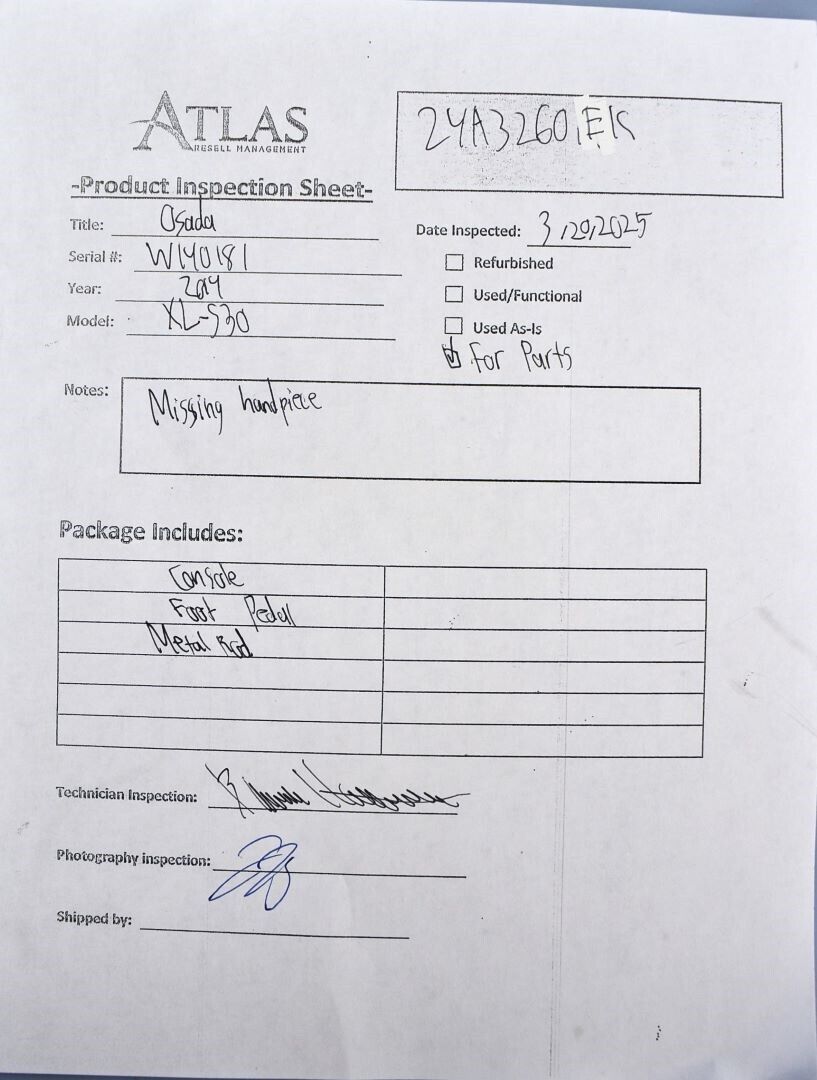 ATLAS
RESELL MANAGEMENT
24A3260 EK
-Product Inspection Sheet-
Title: Osada
Date Inspected: 3/20/2025
Serial #: W140181
Refurbished
Year: 2014
Used/Functional
Model: XL-S30
Used As-Is
For Parts
Notes: Missing handpiece
Package Includes:
Console
Foot Pedal
Metal Rod
Technician Inspection:
Photography inspection:
Shipped by: